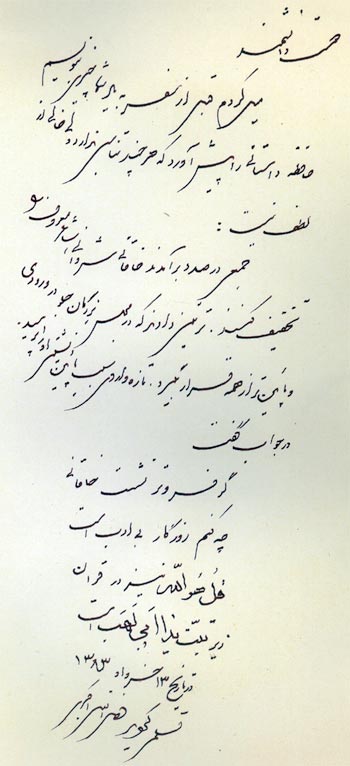 دانشمند
میل کردم قبل از سفر به یاد شما چیزی بنویسم
حافظه داستانی را پیش آورد که هر چند تناسبی ندارد ولی خالی از
لطف نیست :
جمعی در صدد برآمدند خاقانی شروانی شاعر معروف را
تخفیف کنند. ترتیبی دادند که در مجلس بزرگان جو در ورودی
و پایین تر از همه قرار گیرد. تازه واردی سبب پایین نشینی او پرسید.
در جواب گفت
گر فروتر نشست خاقانی
چه کنم روزگار بی ادب است
قل هو الله نیز در قرآن
زیر تبت یدا ابی لهب است
در تاریخ ۱۳ خرداد ۱۳۸۳